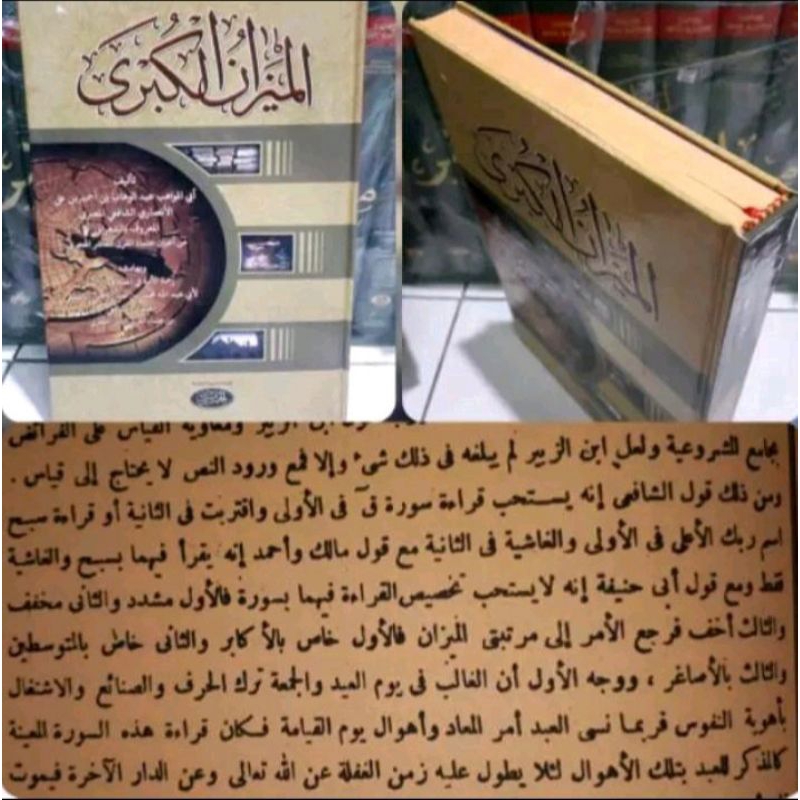 الميزان الكبرى
تأليف
أبي المواهب عبد الوهاب بن أحمد بن علي
الأنصاري الشافعي المصري
المعروف بالشعراني
الميزان الكبرى
ابن الزبير ومعاوية القياس على الفرائض
بجامع المشروعية ولعل ابن الزبير لم يبلغه فى ذلك شىء وإلا فمع ورود النص لا يحتاج إلى قياس .
ومن ذلك قول الشافعى إنه يستحب قراءة سورة قۤ فى الأولى واقتربت فى الثانية أو قراءة سبح
اسم ربك الأعلى فى الأولى والغاشية فى الثانية مع قول مالك وأحمد إنه يقرأ فيهما بسبح والغاشية
فقط ومع قول أبى حنيفة إنه لا يستحب تخصيص القراءة فيهما بسورة فالأول مشدد والثانى مخفف
والثالث أخف فرجع الأمر إلى مرتبتى الميزان فالأول خاص بالأكابر والثانى خاص بالمتوسطين
والثالث بالأصاغر ، ووجه الأول أن الغالب فى يوم العيد والجمعة ترك الحرف والصنائع والاشتغال
بأهوية النفوس فربما نسى العبد أمر المعاد وأهوال يوم القيامة فكان قراءة هذه السورة المعينة
كالمذكر للعبد بتلك الأهوال لئلا يطول عليه زمن الغفلة عن الله تعالى وعن الدار الآخرة فيموت